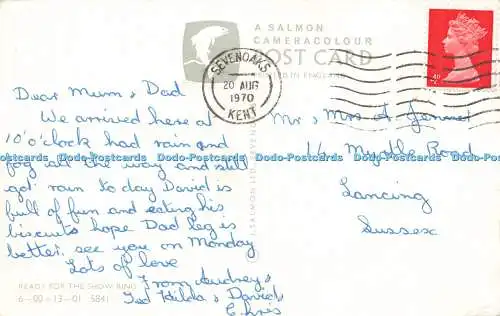 A SALMON
CAMERACOLOUR
POST CARD
PRINTED IN ENGLAND
SEVENOAKS
20 AUG
1970
KENT
4D
Dear Mum & Dad
We arrived here at
10'o'clock had rain and
fog all the way and still
got rain to day David is
full of fun and eating his
biscuits hope Dad leg is
better. see you on Monday
Lots of love
From Audrey &
Ted Hilda & David,
Chris
Mr & Mrs A
16 Myrtle Road
Lancing
Sussex
Dodo-Postcards Dodo-Postcards Dodo-Postcards Dodo-Postcards
READY FOR THE SHOW RING
6-00-13-01 5841